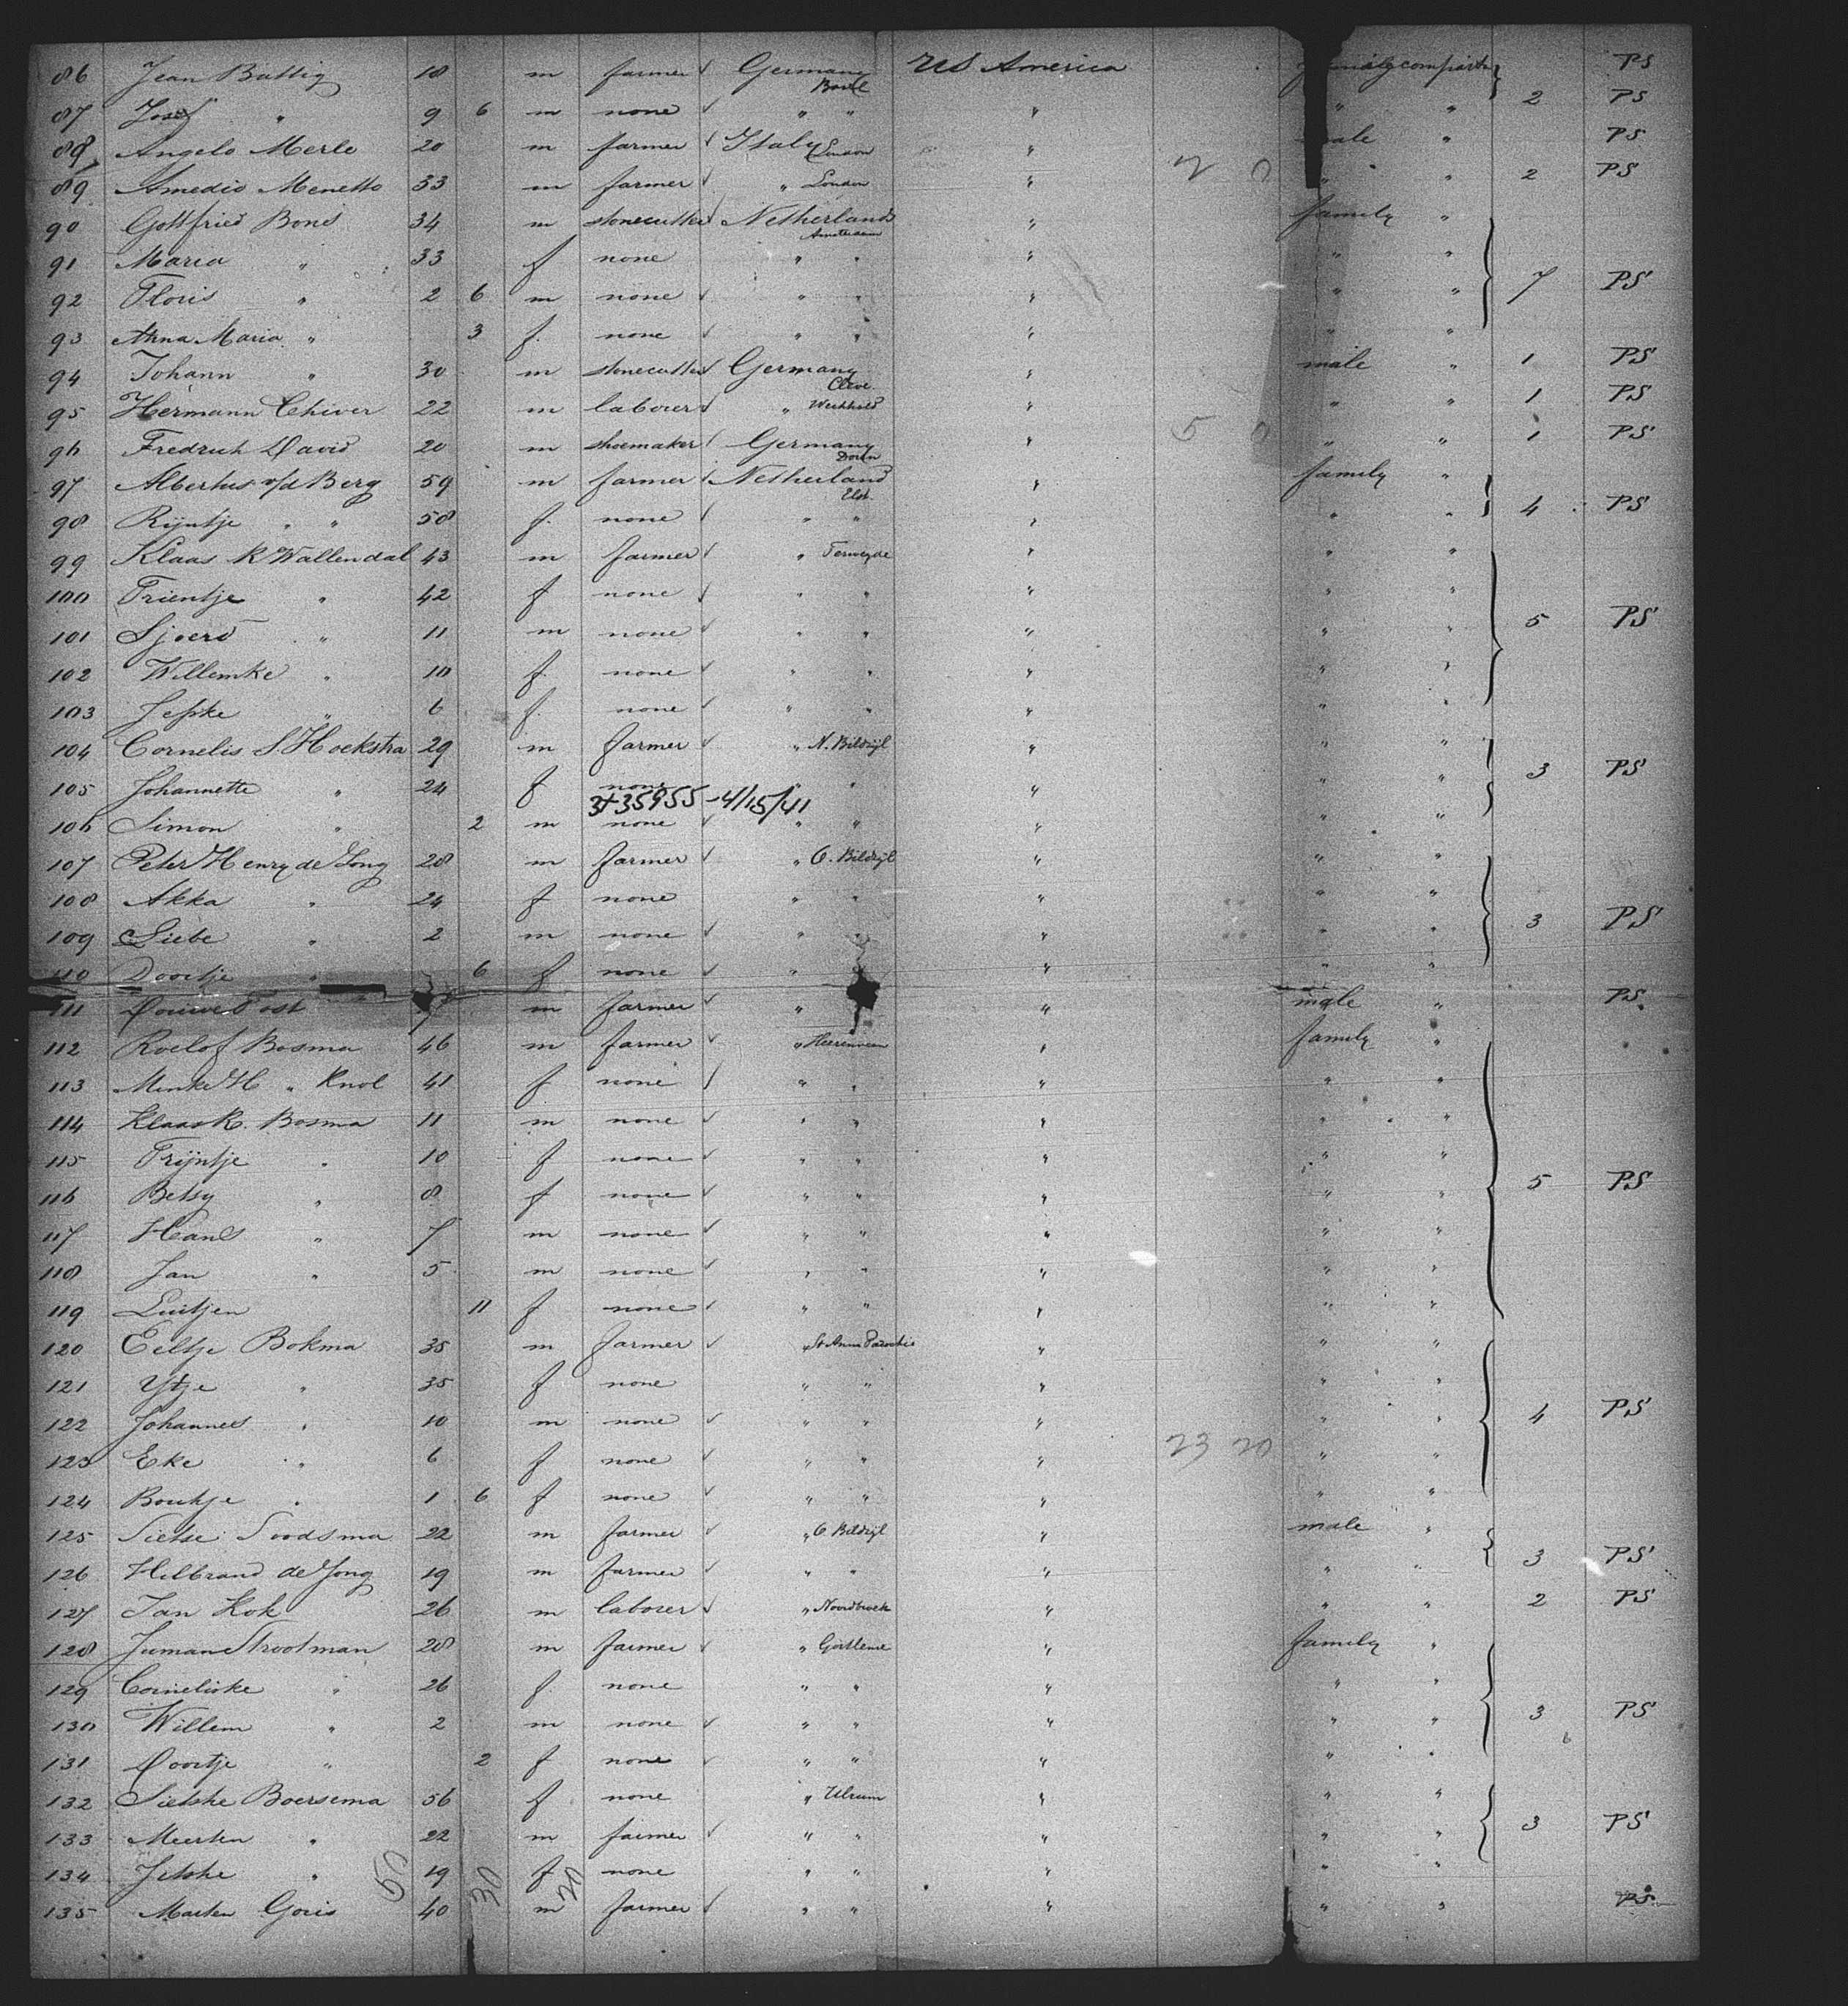 86 Jean Battig 18 m farmer ✓ Germany Basel US America family compartm PS
87 Josef " 9 6 m none ✓ " " " " " 2 PS
88 Angelo Merlo 20 m farmer ✓ Italy London " male " PS
89 Amedio Menetto 33 m farmer ✓ " London " 2 0 " " 2 PS
90 Gottfried Bons 34 m stonecutter ✓ Netherlands Amsterdam " family "
91 Maria " 33 f none " " " " "
92 Floris " 2 6 m none ✓ " " " " " 7 PS
93 Anna Maria " 3 f. none ✓ " " " " "
94 Johann " 30 m stonecutter ✓ Germany Cleve " male " 1 PS
95 Hermann Chiver 22 m laborer ✓ " " " " 1 PS
96 Fredrich David 20 m shoemaker ✓ Germany " 5 0 " " 1 PS
97 Albertus v/d Berg 59 m farmer ✓ Netherland Elst " family "
98 Rijntje " " 58 f. none ✓ " " " " " 4 PS
99 Klaas K Wallendal 43 m farmer ✓ " Terneyde " " "
100 Trientje " 42 f none ✓ " " " " "
101 Sjoerd " 11 m none ✓ " " " " " 5 PS
102 Willemke " 10 f. none ✓ " " " " "
103 Jepke " 6 f. none ✓ " " " " "
104 Cornelis S. Hoekstra 29 m farmer ✓ " N. Bildzijl " " "
105 Johannette " 24 f none " " " " " 3 PS
3+35955-4/15/41
106 Simon " 2 m none ✓ " " " " "
107 Peter Henry de Jong 28 m farmer ✓ " O. Bildzijl " " "
108 Akka " 24 f none " " " " "
109 Siebe " 2 m none ✓ " " " " " 3 PS
110 Doortje " 6 f none ✓ " " " " "
111 Douwe Post m farmer ✓ " " male " PS
112 Roelof Bosma 46 m farmer ✓ " Heerenveen " family "
113 Minke H " Knol 41 f none ✓ " " " " "
114 Klaas R. Bosma 11 m none ✓ " " " " "
115 Trijntje " 10 f none ✓ " " " " "
116 Betsy " 8 f none ✓ " " " " " 5 PS
117 Hans " 7 m none ✓ " " " " "
118 Jan " 5 m none ✓ " " " " "
119 Luitjen 11 f none ✓ " " " " "
120 Eeltje Bokma 35 m farmer ✓ " St Anna Parochie " " "
121 Ytje " 35 f none " " " " "
122 Johannes " 10 m none ✓ " " " " " 4 PS
123 Eke " 6 f none ✓ " " " 23 20 " "
124 Boukje " 1 6 f none ✓ " " " " "
125 Sietse Soodsma 22 m farmer ✓ " O Bildzijl " male "
126 Hilbrand de Jong 19 m farmer ✓ " " " " " 3 PS
127 Jan Kok 26 m laborer ✓ " Noordbroek " " " 2 PS
128 Strootman 28 m farmer ✓ " " family "
129 Corneliske " 26 f. none " " " " "
130 Willem " 2 m none ✓ " " " " " 3 PS
131 Doortje " 2 f none ✓ " " " " "
132 Sietske Boersema 56 f none " Ulrum " " "
133 Meerten " 22 m farmer ✓ " " " " " 3 PS
134 Jetske " 19 f none " " " " "
135 Marten Goris 40 m farmer ✓ " " " " " PS
50 30 20